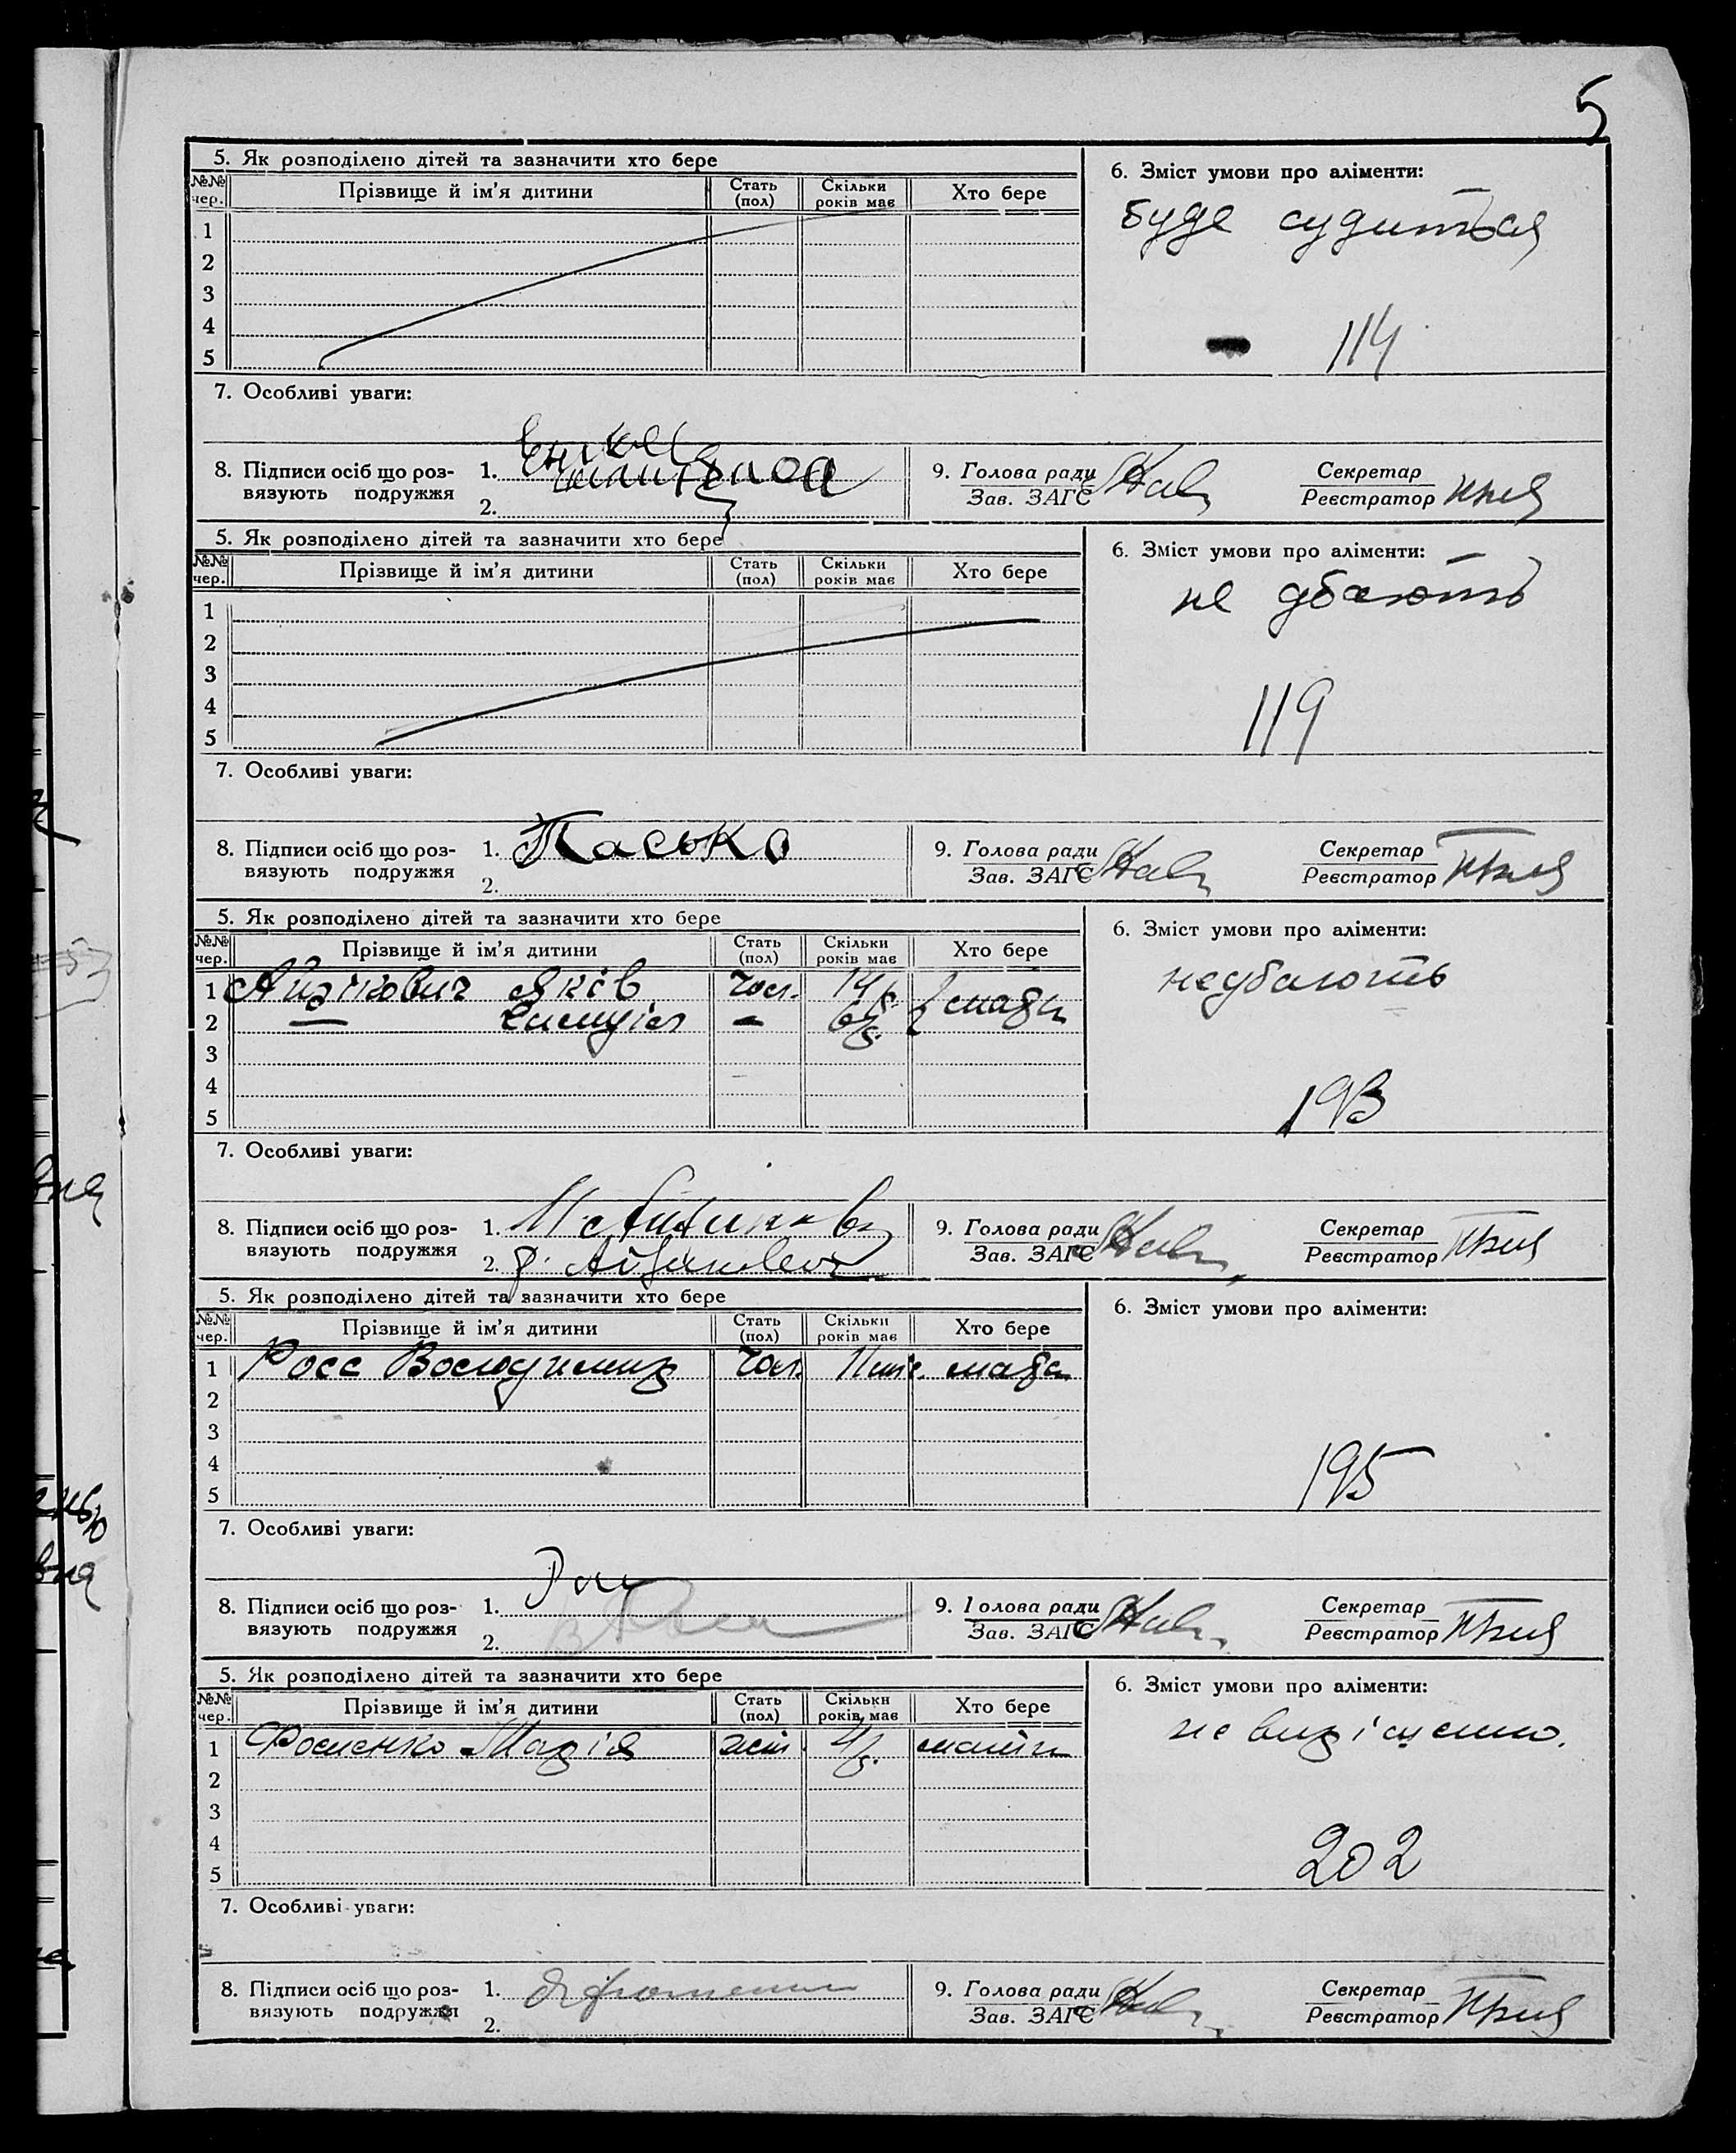 5
5. Як розподілено дітей та зазначити хто бере
6. Зміст умови про аліменти:
№№ чер. Прізвище й ім'я дитини Стать (пол) Скільки років має Хто бере
буде судиться
1
2
3
4
5
114
7. Особливі уваги:
8. Підписи осіб що роз-вязують подружжя 1.
2.
9. Голова ради Зав. ЗАГС
Секретар Реєстратор
5. Як розподілено дітей та зазначити хто бере
6. Зміст умови про аліменти:
№№ чер. Прізвище й ім'я дитини Стать (пол) Скільки років має Хто бере
не дбають
1
2
3
4
5
119
7. Особливі уваги:
8. Підписи осіб що роз-вязують подружжя 1. Пасько
2.
9. Голова ради Зав. ЗАГС
Секретар Реєстратор
5. Як розподілено дітей та зазначити хто бере
6. Зміст умови про аліменти:
№№ чер. Прізвище й ім'я дитини Стать (пол) Скільки років має Хто бере
недбають
1 Яків чол. 14 р.
2 — — 6 р. мати
3
4
5
193
7. Особливі уваги:
8. Підписи осіб що роз-вязують подружжя 1.
2.
9. Голова ради Зав. ЗАГС
Секретар Реєстратор
5. Як розподілено дітей та зазначити хто бере
6. Зміст умови про аліменти:
№№ чер. Прізвище й ім'я дитини Стать (пол) Скільки років має Хто бере
1 Росс Володимир чол. 11 міс. мати
2
3
4
5
195
7. Особливі уваги:
8. Підписи осіб що роз-вязують подружжя 1. Росс
2.
9. Голова ради Зав. ЗАГС
Секретар Реєстратор
5. Як розподілено дітей та зазначити хто бере
6. Зміст умови про аліменти:
№№ чер. Прізвище й ім'я дитини Стать (пол) Скільки років має Хто бере
не вирішено.
1 Фоменко Марія жін. 4 р. мати
2
3
4
5
202
7. Особливі уваги:
8. Підписи осіб що роз-вязують подружжя 1.
2.
9. Голова ради Зав. ЗАГС
Секретар Реєстратор